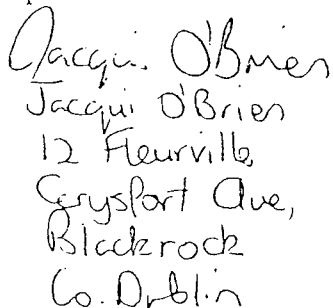 Jacqui O'Brien
Jacqui O'Brien
12 Fleurville,
Carysfort Ave,
Blackrock
Co. Dublin